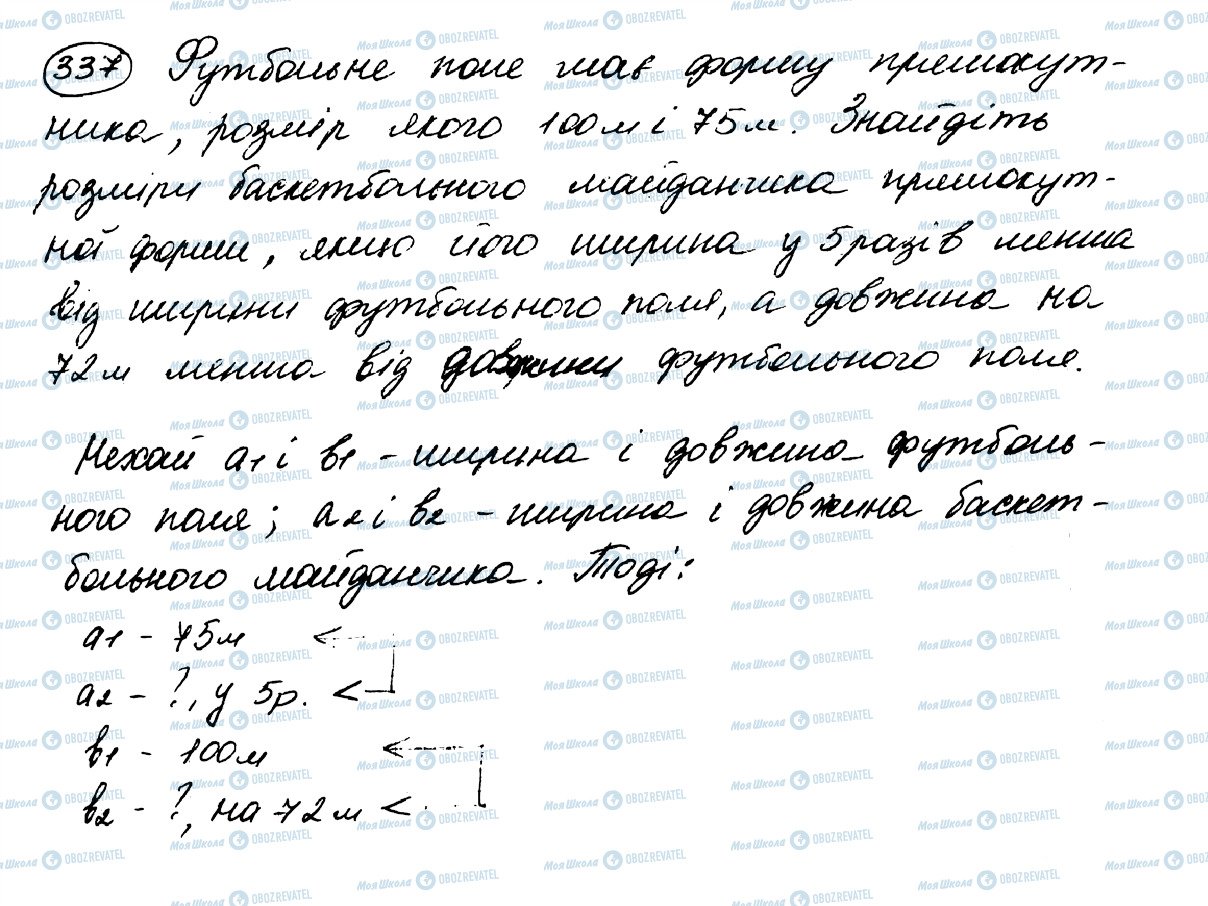 337 Футбольне поле має форму прямокут-
ника, розмір якого 100 м і 75 м. Знайдіть
розміри баскетбольного майданчика прямокут-
ної форми, якщо його ширина у 5 разів менша
від ширини футбольного поля, а довжина на
72 м менша від довжини футбольного поля.
Нехай a1 і b1 - ширина і довжина футболь-
ного поля; a2 і b2 - ширина і довжина баскет-
больного майданчика. Тоді:
a1 - 75 м <
a2 - ?, у 5 р. <
b1 - 100 м <
b2 - ?, на 72 м <
Моя Школа OBOZREVATEL